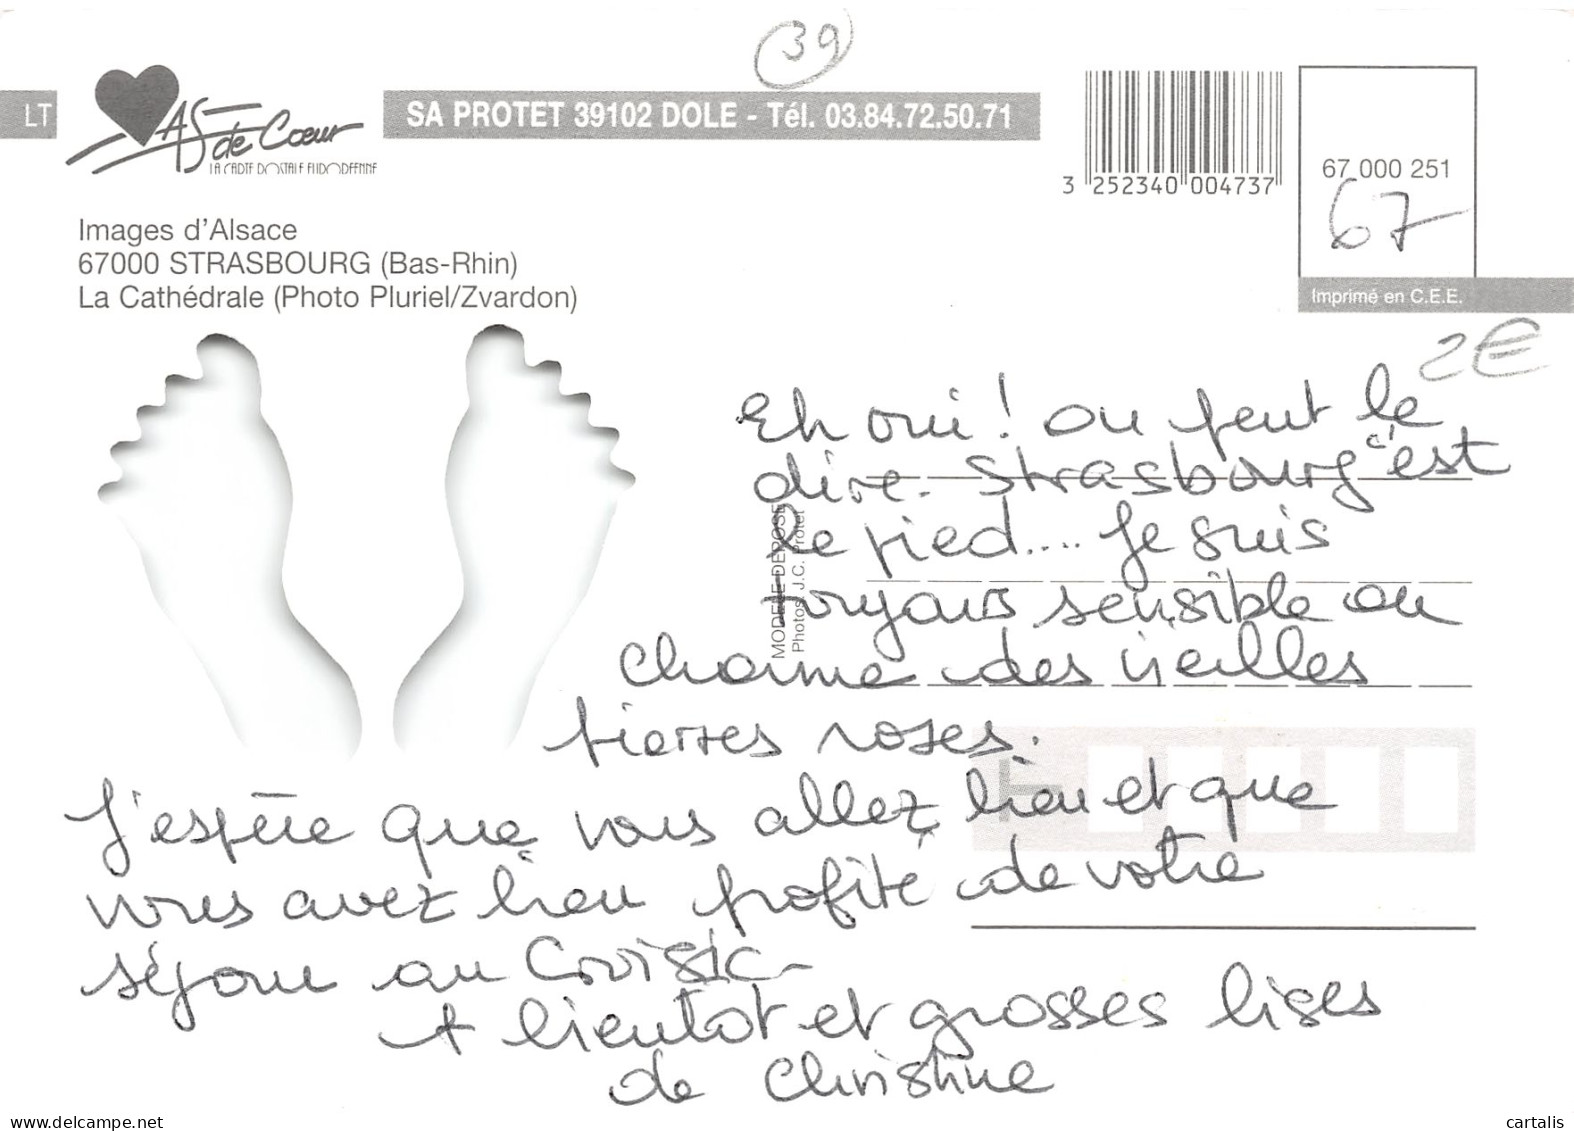 39
LT
AS de Cœur
LA CARTE POSTALE EUROPEENNE
SA PROTET 39102 DOLE - Tél. 03.84.72.50.71
3 252340 004737
67 000 251
67
Imprimé en C.E.E.
2€
Images d'Alsace
67000 STRASBOURG (Bas-Rhin)
La Cathédrale (Photo Pluriel/Zvardon)
MODELE DEPOSE
Photos J.C. Protet
Eh oui ! on peut le
dire. Strasbourg c'est
le pied.... Je suis
toujours sensible au
charme des vieilles
pierres roses.
J'espère que vous allez bien et que
vous avez bien profité de votre
séjour au Croisic
A bientôt et grosses bises
de Christine
www.delcampe.net
cartalis